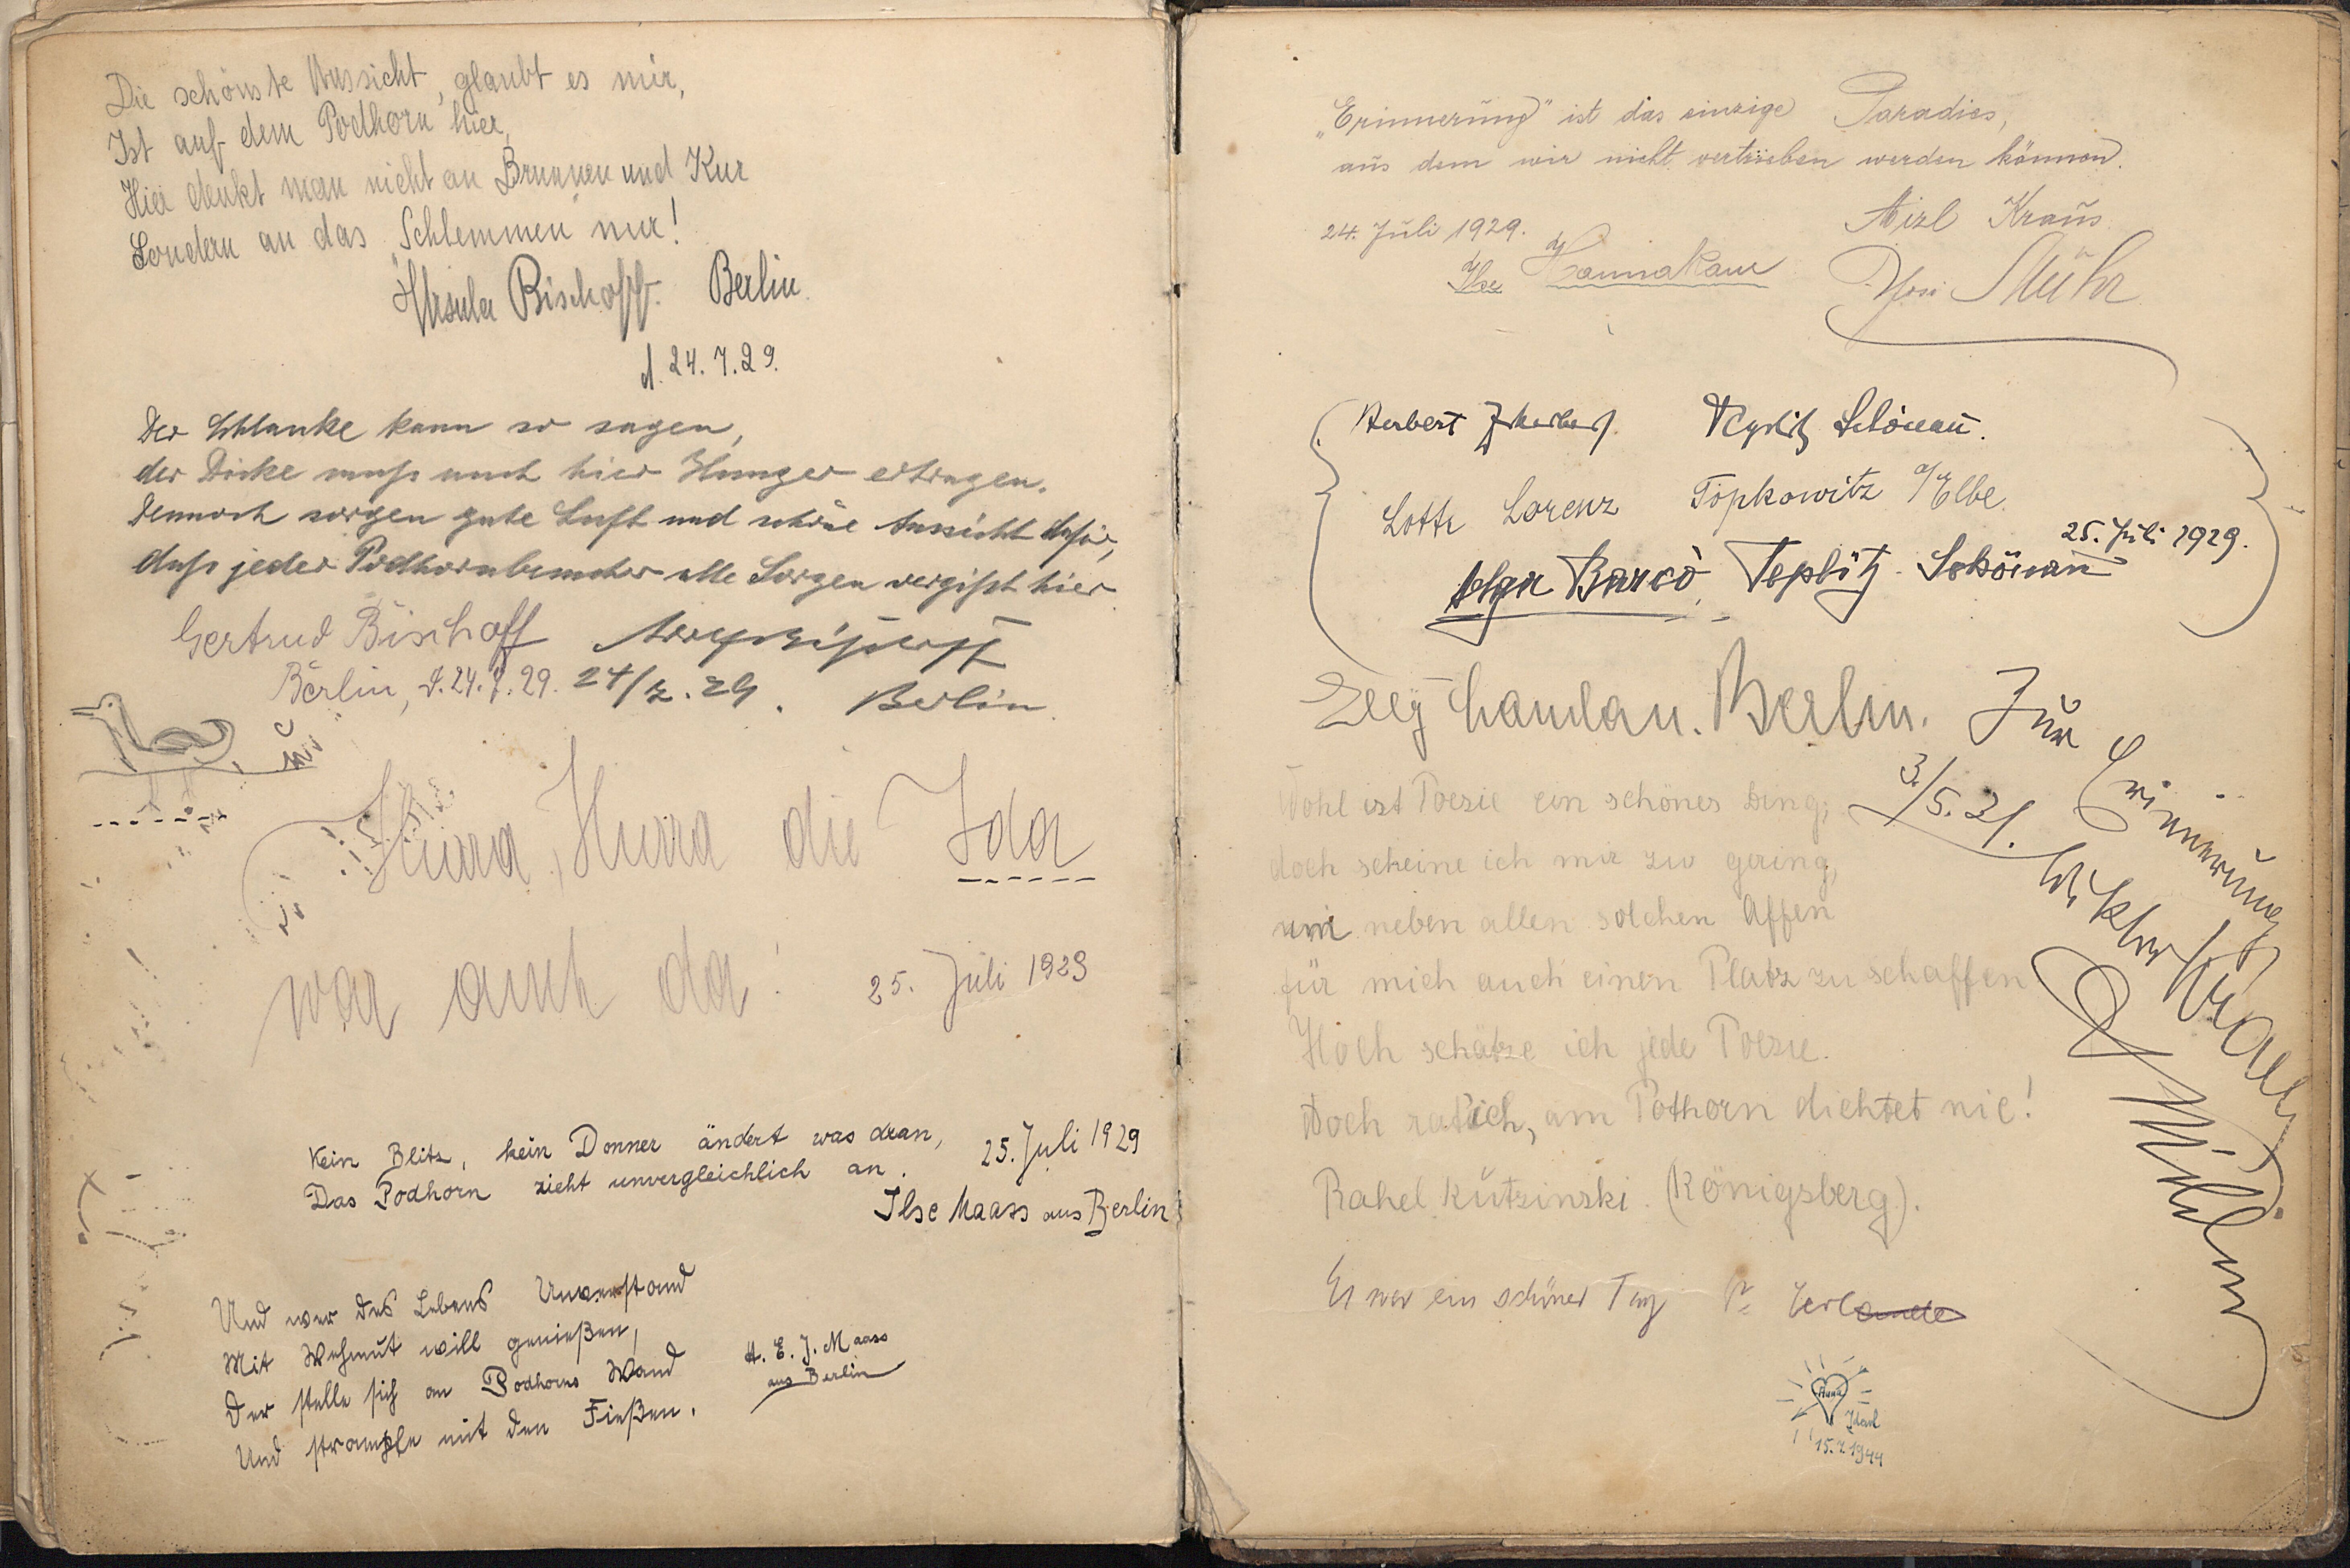 Die schönste Aussicht, glaubt es mir,
Ist auf dem Podhorn hier,
Hier denkt man nicht an Brunnen und Kur
Sondern an das „Schlemmen" nur!
Ursula Bischoff. Berlin.
d. 24.7.29.
Der Schlanke kann so sagen,
der Dicke muß auch hier Hunger ertragen.
Dennoch sorgen gute Luft und schöne Aussicht dafür,
daß jeder Podhornbesucher alle Sorgen vergißt hier
Gertrud Bischoff
Berlin, d. 24.7.29. 24/7.29. Berlin
Hurra, Hurra die Ida
war auch da! 25. Juli 1929
Kein Blitz, kein Donner ändert was dran,
Das Podhorn zieht unvergleichlich an.
25. Juli 1929
Ilse Maass aus Berlin
Und wer des Lebens Unverstand
Mit Wehmut will genießen,
Der stelle sich an Podhorns Wand
Und strample mit den Fießen.
H. E. J. Maass
aus Berlin
„Erinnerung" ist das einzige Paradies,
aus dem wir nicht vertrieben werden können.
24. Juli 1929. Mizl Kraus
Ilse Hannakam Mühr
Herbert Schönau.
Lotte Lorenz Topkowitz a/Elbe.
25. Juli 1929.
Olga Barcò, Teplitz-Schönau
Elly Landau. Berlin.
Zur Erinnerung
3./5.31.
Wohl ist Poesie ein schönes Ding,
doch scheine ich mir zu gering,
um neben allen solchen Affen
für mich auch einen Platz zu schaffen
Hoch schätze ich jede Poesie.
Doch rat ich, am Pothorn dichtet nie!
Rahel Kutzinski. (Königsberg).
Es war ein schöner Tag
15.7.1944